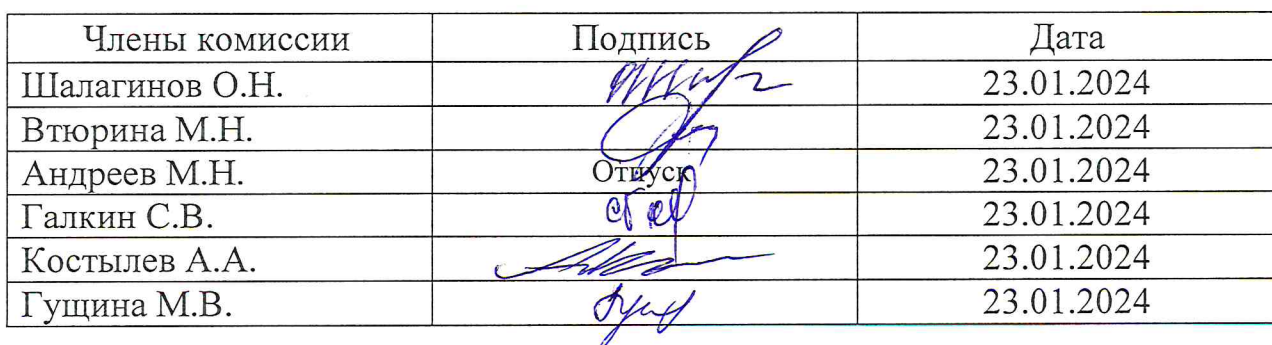 Члены комиссии Подпись Дата
Шалагинов О.Н. 23.01.2024
Втюрина М.Н. 23.01.2024
Андреев М.Н. Отпуск 23.01.2024
Галкин С.В. 23.01.2024
Костылев А.А. 23.01.2024
Гущина М.В. 23.01.2024